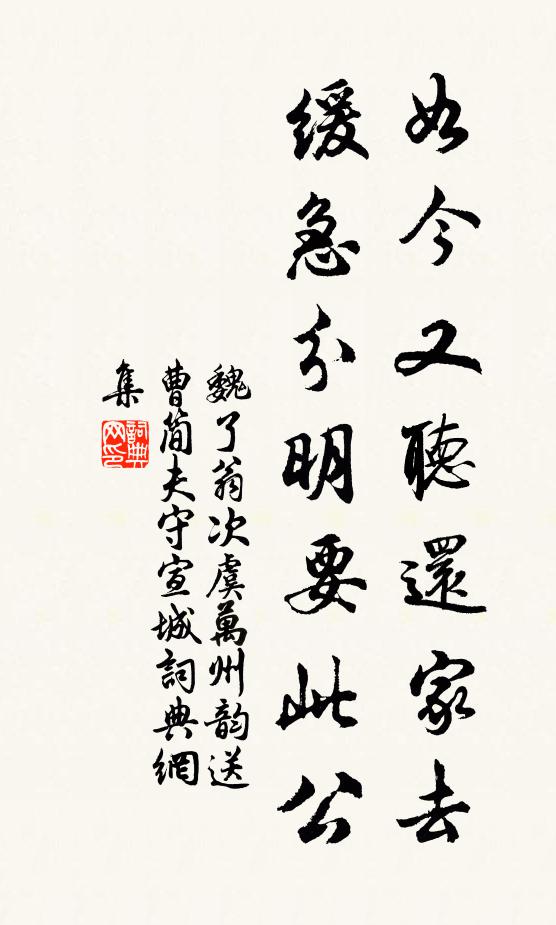 如今又聽還家去
緩急分明要此公
魏了翁次虞萬州韵送
曹簡夫守宣城詞典網
集
詞典
网印